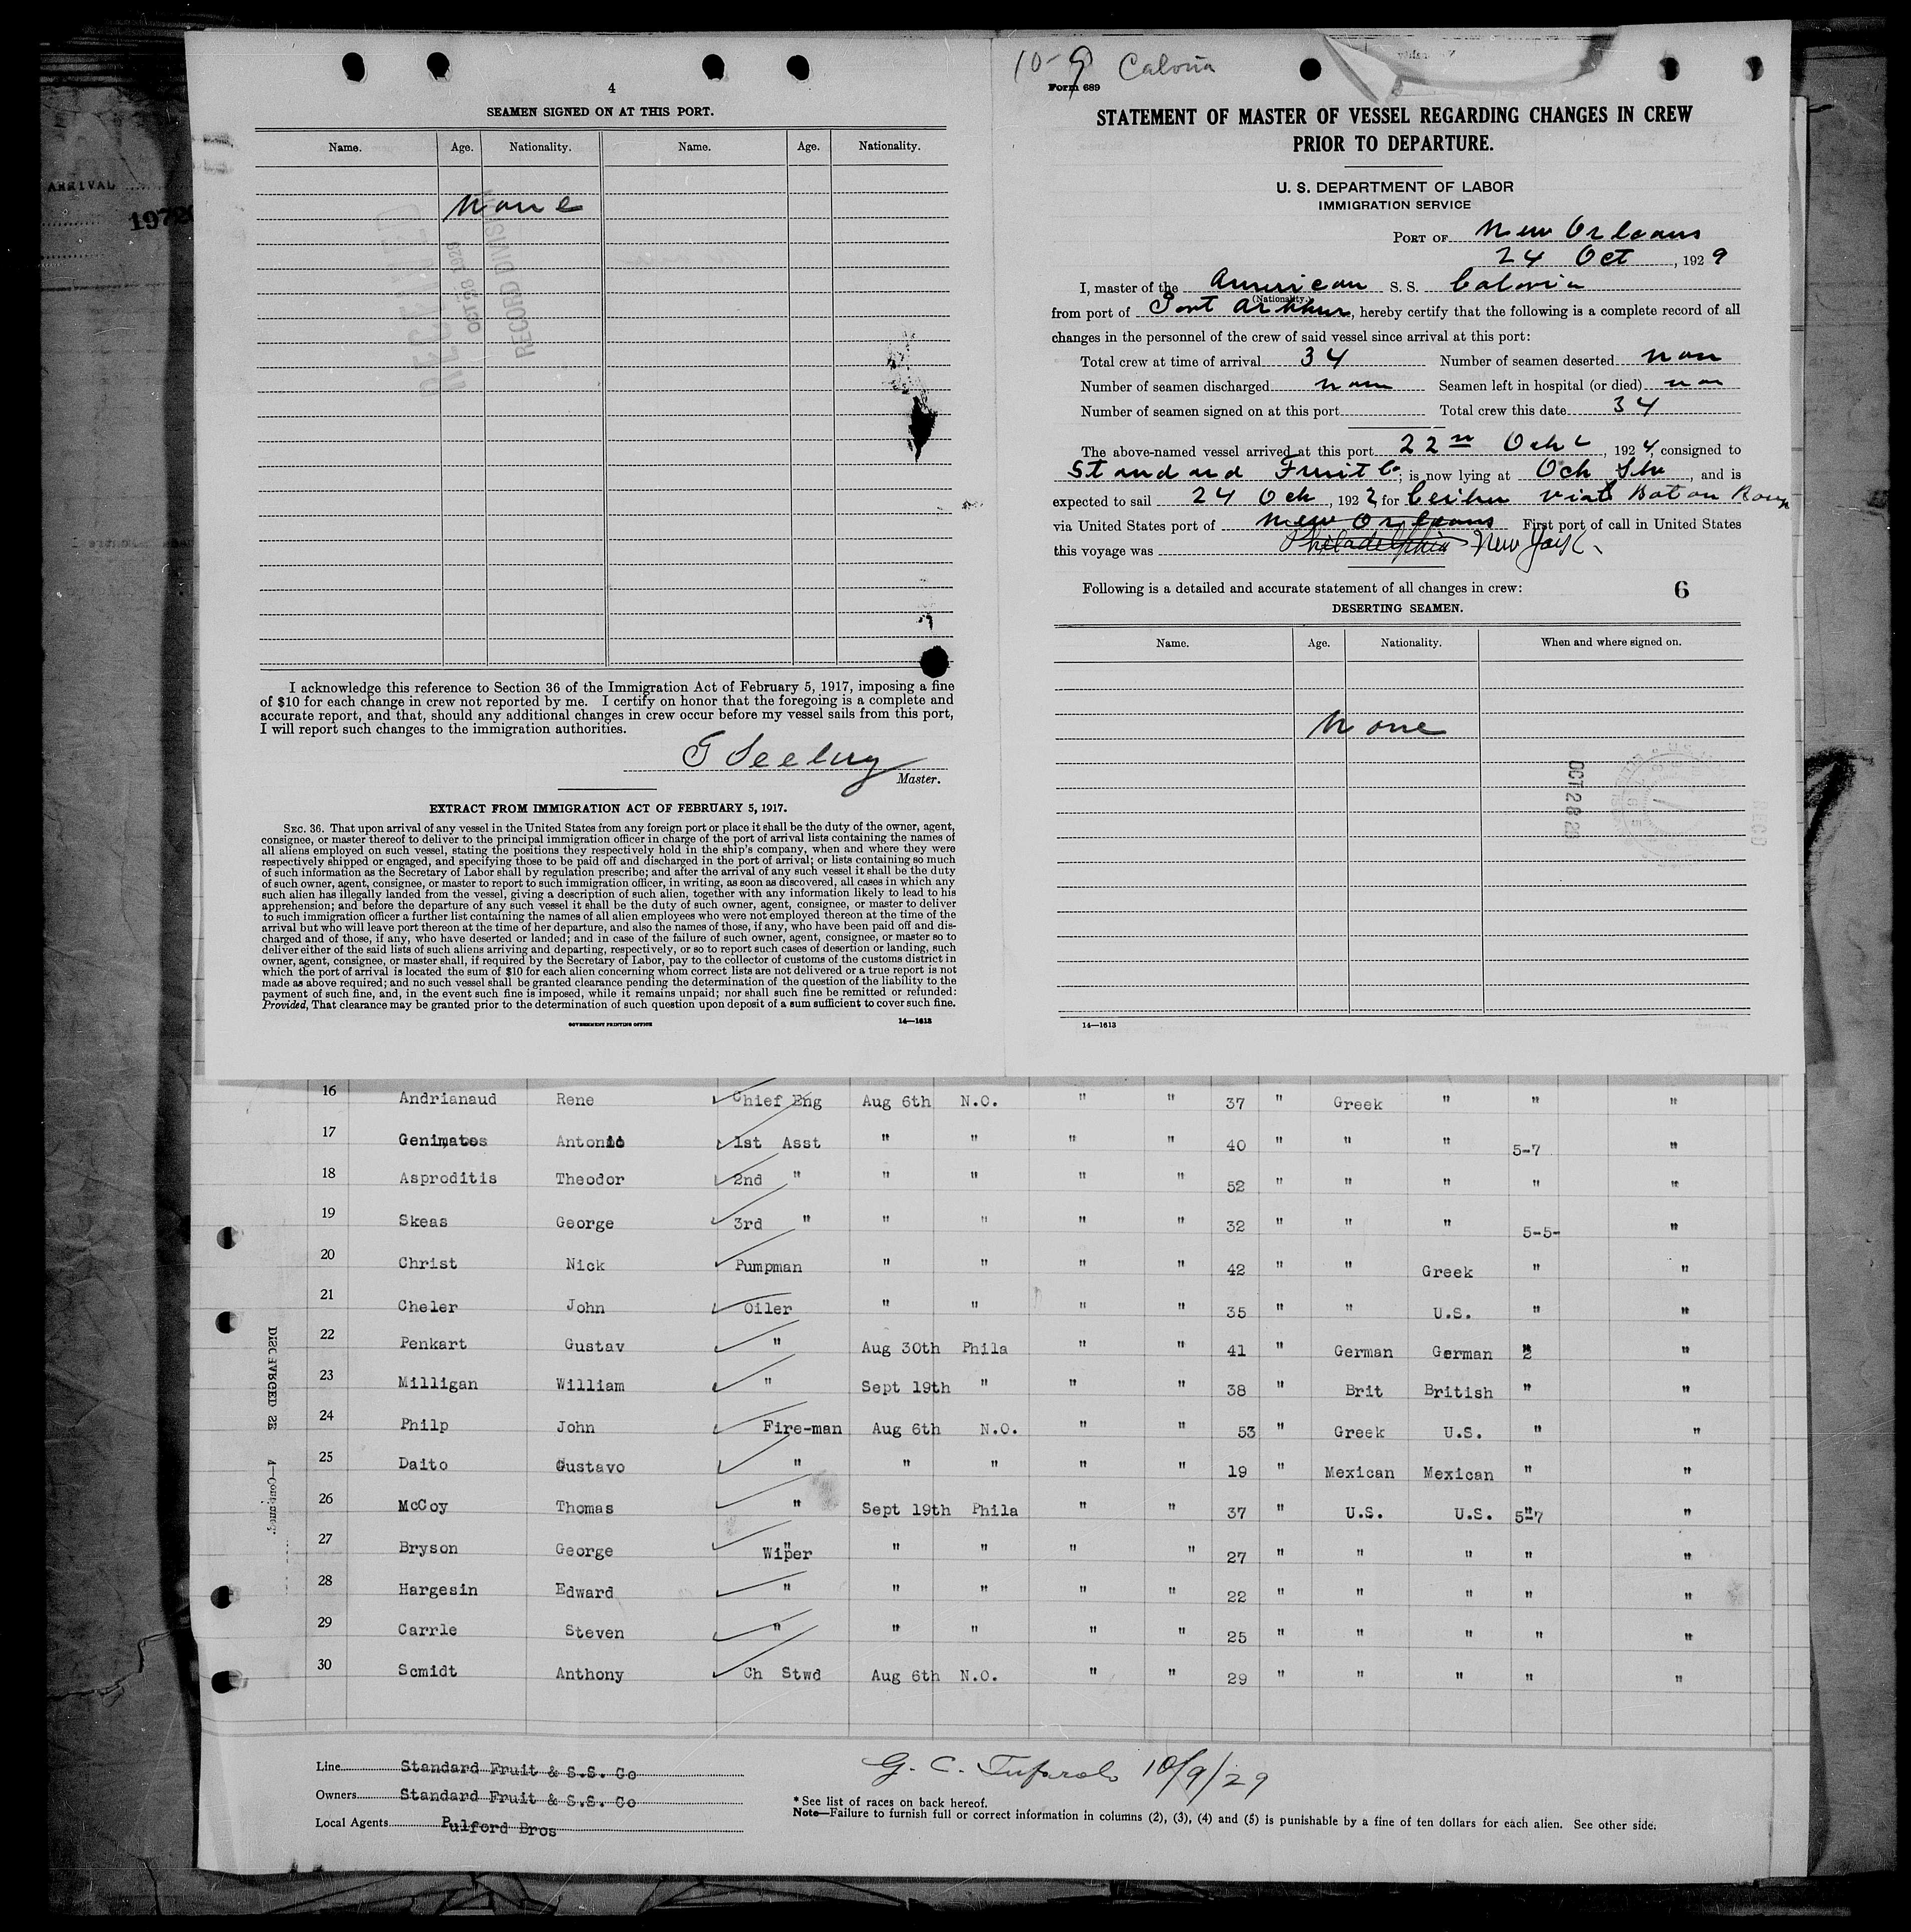 ARRIVAL
4
SEAMEN SIGNED ON AT THIS PORT.
Name. Age. Nationality. Name. Age. Nationality.
None
OCT 28 1929
RECORD DIVISION
I acknowledge this reference to Section 36 of the Immigration Act of February 5, 1917, imposing a fine
of $10 for each change in crew not reported by me. I certify on honor that the foregoing is a complete and
accurate report, and that, should any additional changes in crew occur before my vessel sails from this port,
I will report such changes to the immigration authorities.
Master.
EXTRACT FROM IMMIGRATION ACT OF FEBRUARY 5, 1917.
SEC. 36. That upon arrival of any vessel in the United States from any foreign port or place it shall be the duty of the owner, agent,
consignee, or master thereof to deliver to the principal immigration officer in charge of the port of arrival lists containing the names of
all aliens employed on such vessel, stating the positions they respectively hold in the ship's company, when and where they were
respectively shipped or engaged, and specifying those to be paid off and discharged in the port of arrival; or lists containing so much
of such information as the Secretary of Labor shall by regulation prescribe; and after the arrival of any such vessel it shall be the duty
of such owner, agent, consignee, or master to report to such immigration officer, in writing, as soon as discovered, all cases in which any
such alien has illegally landed from the vessel, giving a description of such alien, together with any information likely to lead to his
apprehension; and before the departure of any such vessel it shall be the duty of such owner, agent, consignee, or master to deliver
to such immigration officer a further list containing the names of all alien employees who were not employed thereon at the time of the
arrival but who will leave port thereon at the time of her departure, and also the names of those, if any, who have been paid off and dis-
charged and of those, if any, who have deserted or landed; and in case of the failure of such owner, agent, consignee, or master so to
deliver either of the said lists of such aliens arriving and departing, respectively, or so to report such cases of desertion or landing, such
owner, agent, consignee, or master shall, if required by the Secretary of Labor, pay to the collector of customs of the customs district in
which the port of arrival is located the sum of $10 for each alien concerning whom correct lists are not delivered or a true report is not
made as above required; and no such vessel shall be granted clearance pending the determination of the question of the liability to the
payment of such fine, and, in the event such fine is imposed, while it remains unpaid; nor shall such fine be remitted or refunded:
Provided, That clearance may be granted prior to the determination of such question upon deposit of a sum sufficient to cover such fine.
GOVERNMENT PRINTING OFFICE 14—1613
10-9 Caloria
Form 689
STATEMENT OF MASTER OF VESSEL REGARDING CHANGES IN CREW
PRIOR TO DEPARTURE.
U. S. DEPARTMENT OF LABOR
IMMIGRATION SERVICE
PORT OF New Orleans
24 Oct, 1929
I, master of the American S. S. Caloria
(Nationality.)
from port of Port Arthur, hereby certify that the following is a complete record of all
changes in the personnel of the crew of said vessel since arrival at this port:
Total crew at time of arrival 34 Number of seamen deserted non
Number of seamen discharged non Seamen left in hospital (or died) non
Number of seamen signed on at this port Total crew this date 34
The above-named vessel arrived at this port 22n Oct, 1924, consigned to
Standard Fruit Co, is now lying at , and is
expected to sail 24 Oct, 192 , for Ceiba via Baton Rouge
via United States port of New Orleans First port of call in United States
this voyage was Philadelphia New York
Following is a detailed and accurate statement of all changes in crew: 6
DESERTING SEAMEN.
Name. Age. Nationality. When and where signed on.
None
OCT 28 29
14—1613
16 Andrianaud Rene Chief Eng Aug 6th N.O. " " 37 " Greek " " "
17 Genimatos Antonio 1st Asst " " " " 40 " " " 5-7 "
18 Asproditis Theodor 2nd " " " " " 52 " " " " "
19 Skeas George 3rd " " " " " 32 " " " 5-5- "
20 Christ Nick Pumpman " " " " 42 " " Greek " "
21 Cheler John Oiler " " " " 35 " " U.S. " "
22 Penkart Gustav " Aug 30th Phila " " 41 " German German 2 "
23 Milligan William " Sept 19th " " " 38 " Brit British " "
24 Philp John Fire-man Aug 6th N.O. " " 53 " Greek U.S. " "
25 Daito Gustavo " " " " " 19 " Mexican Mexican " "
26 McCoy Thomas " Sept 19th Phila " " 37 " U.S. U.S. 5-7 "
27 Bryson George Wiper " " " " 27 " " " " "
28 Hargesin Edward " " " " " 22 " " " " "
29 Carrle Steven " " " " " 25 " " " " "
30 Scmidt Anthony Ch Stwd Aug 6th N.O. " " 29 " " " " "
Line Standard Fruit & S.S. Co
Owners Standard Fruit & S.S. Co
Local Agents Pulford Bros
G. C. 10/9/29
* See list of races on back hereof.
Note—Failure to furnish full or correct information in columns (2), (3), (4) and (5) is punishable by a fine of ten dollars for each alien. See other side.